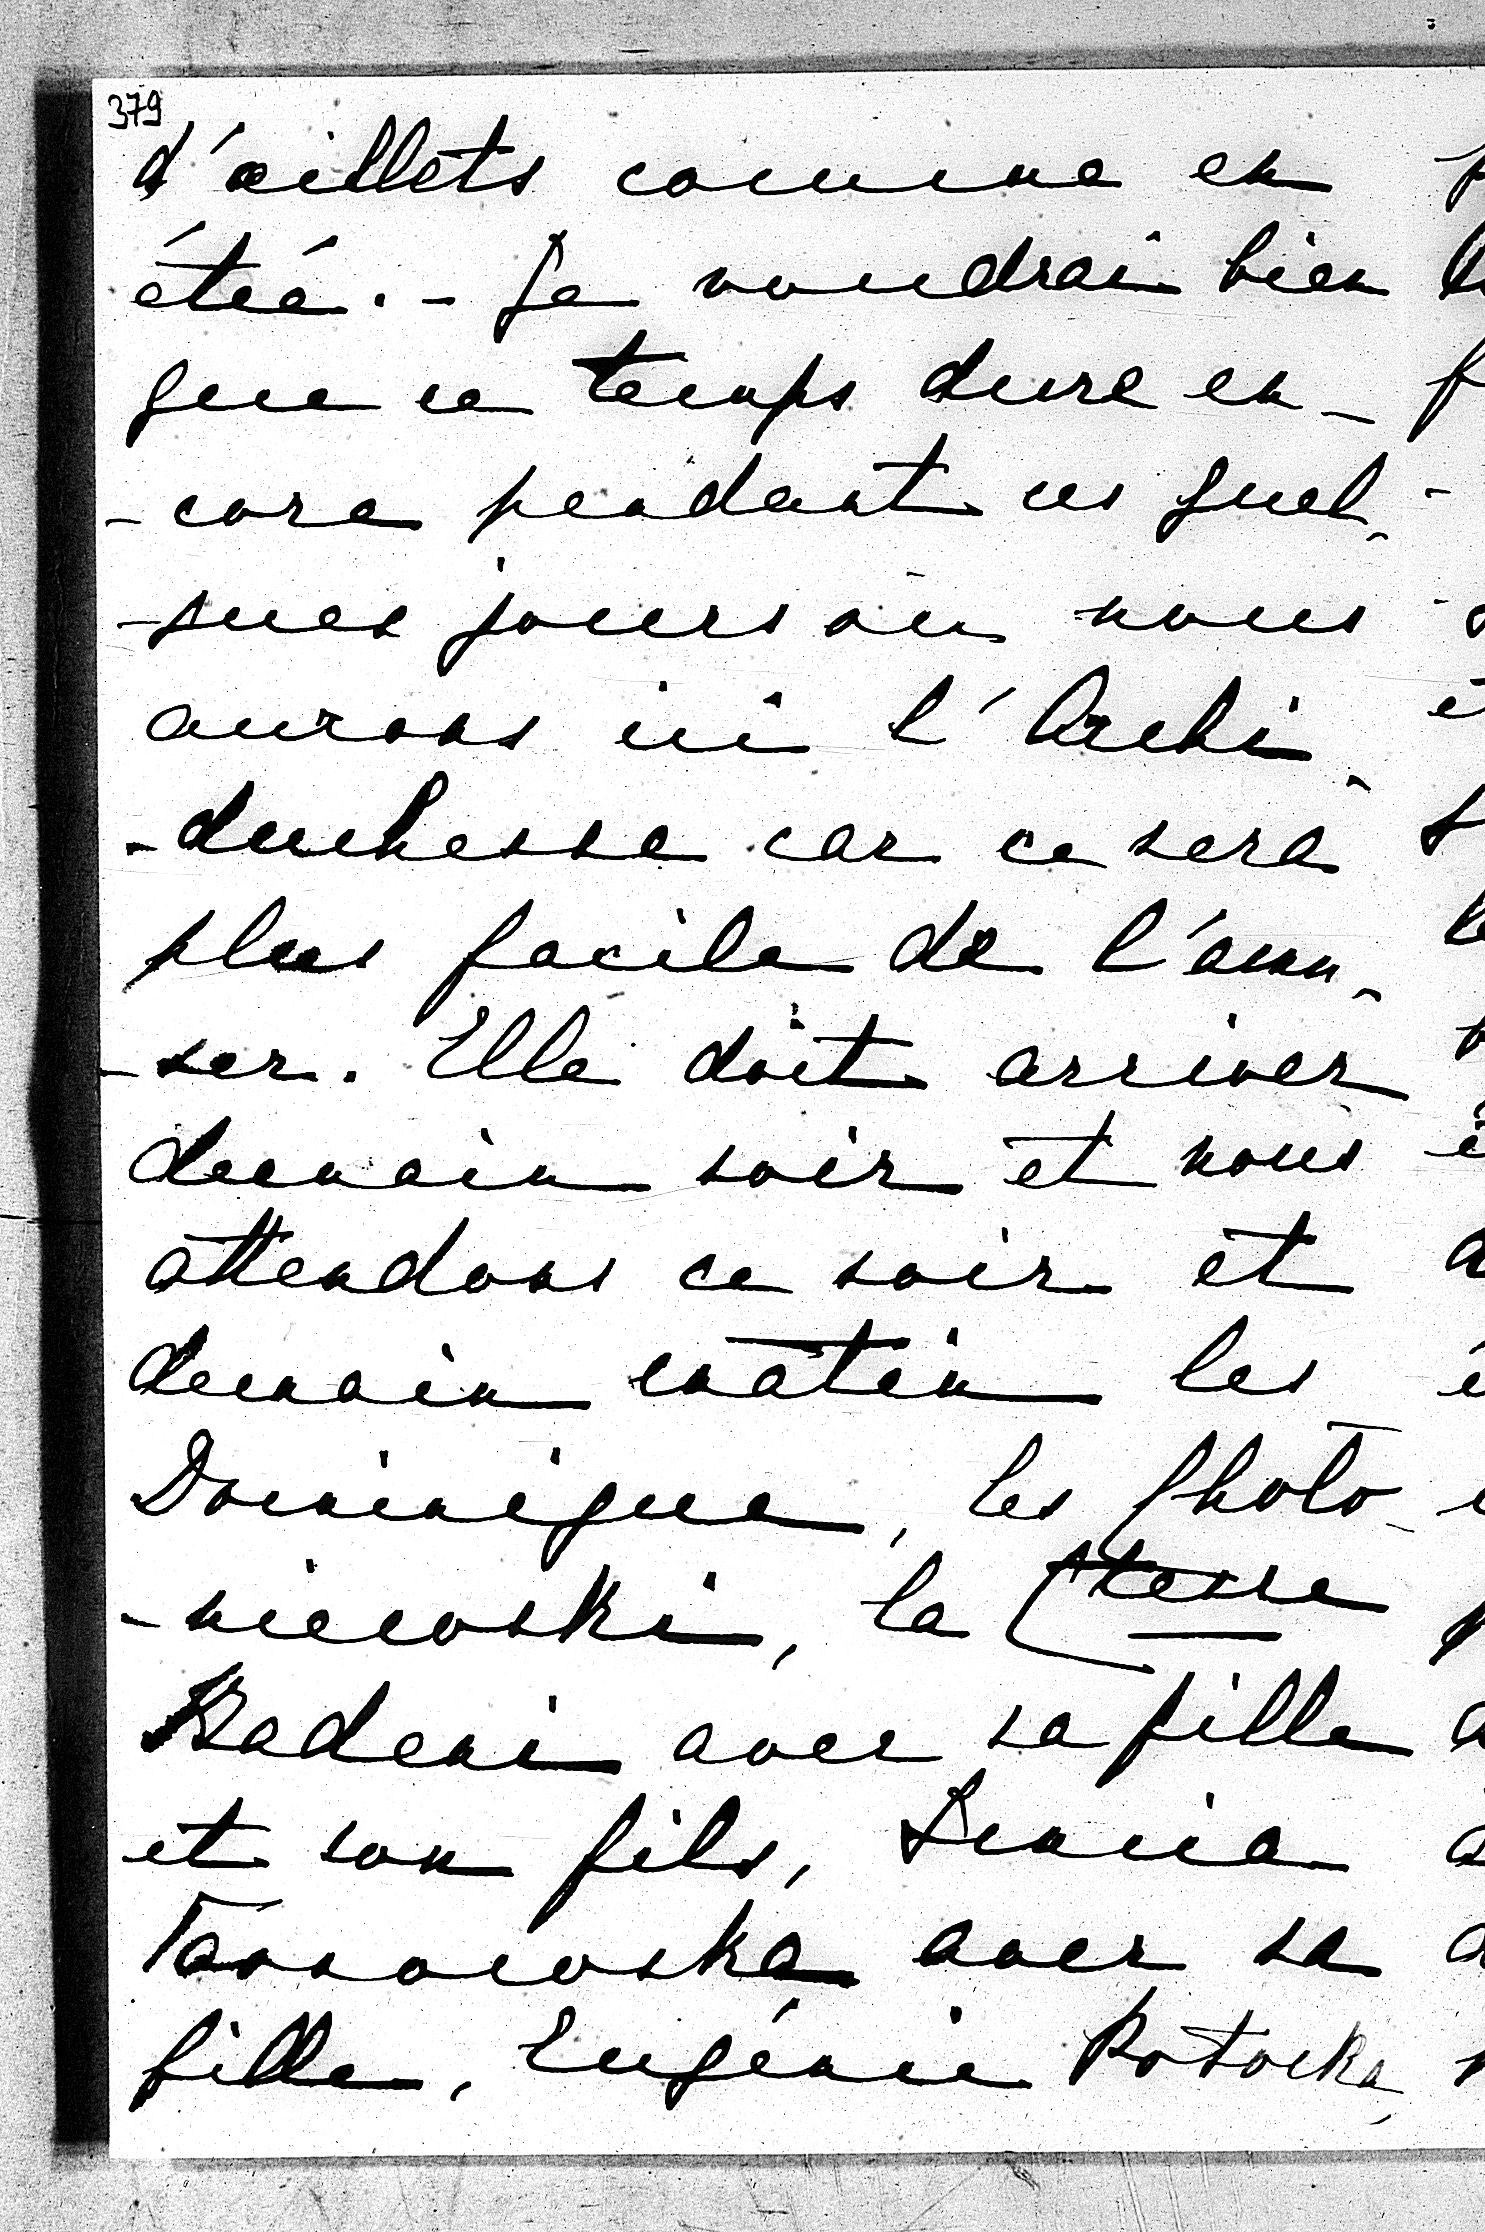 379
d'œillets comme en
été. - Je voudrai bien
que ce temps dure en-
-core pendant ces quel-
-ques jours où nous
aurons ici l'Archi-
-duchesse car ce sera
plus facile de l'amu-
-ser. Elle doit arriver
demain soir et nous
attendons ce soir et
demain matin les
Dominique, les Choło-
-niewski, la Ctesse
Badeni avec sa fille
et son fils,
Tarnowska avec sa
fille, Eugénie Potocka,